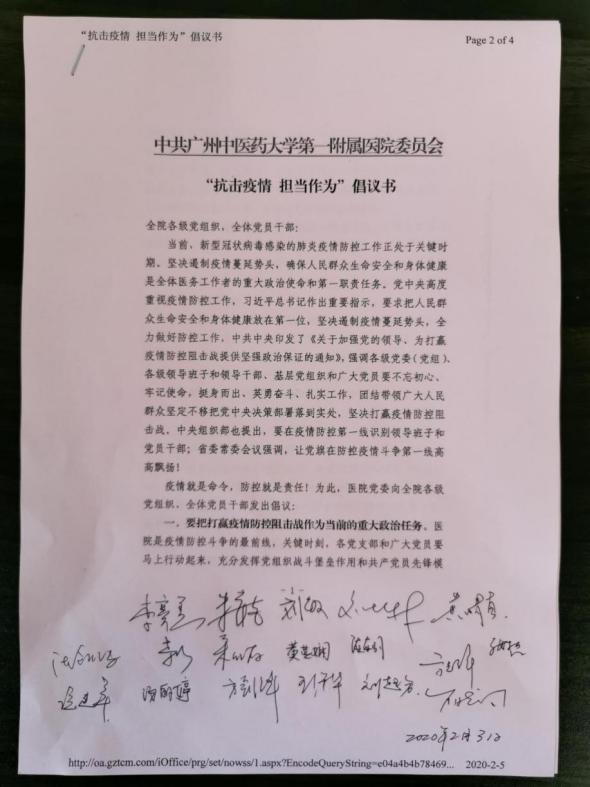 “抗击疫情 担当作为”倡议书
Page 2 of 4
中共广州中医药大学第一附属医院委员会
“抗击疫情 担当作为”倡议书
全院各级党组织，全体党员干部：
当前，新型冠状病毒感染的肺炎疫情防控工作正处于关键时
期。坚决遏制疫情蔓延势头，确保人民群众生命安全和身体健康
是全体医务工作者的重大政治使命和第一职责任务。党中央高度
重视疫情防控工作，习近平总书记作出重要指示，要求把人民群
众生命安全和身体健康放在第一位，坚决遏制疫情蔓延势头，全
力做好防控工作，中共中央印发了《关于加强党的领导、为打赢
疫情防控阻击战提供坚强政治保证的通知》，强调各级党委（党组）、
各级领导班子和领导干部、基层党组织和广大党员要不忘初心、
牢记使命，挺身而出、英勇奋斗、扎实工作，团结带领广大人民
群众坚定不移把党中央决策部署落到实处，坚决打赢疫情防控阻
击战。中央组织部也提出，要在疫情防控第一线识别领导班子和
党员干部；省委常委会议强调，让党旗在防控疫情斗争第一线高
高飘扬！
疫情就是命令，防控就是责任！为此，医院党委向全院各级
党组织，全体党员干部发出倡议：
一、要把打赢疫情防控阻击战作为当前的重大政治任务。医
院是疫情防控斗争的最前线，关键时刻，各党支部和广大党员要
马上行动起来，充分发挥党组织战斗堡垒作用和共产党员先锋模
刘敏
2020年2月3日
http://oa.gztcm.com/iOffice/prg/set/nowss/1.aspx?EncodeQueryString=e04a4b4b78469...
2020-2-5